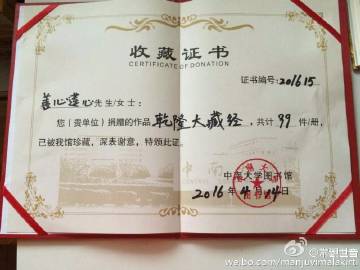 收藏证书
CERTIFICATE OF DONATION
证书编号:201615
善心莲心先生/女士:
您(贵单位)捐赠的作品 乾隆大藏经,共计 99 件/册,
已被我馆珍藏,深表谢意,特颁此证。
图书馆
2016年4月14日
weibo.com/manjuvimalakirti